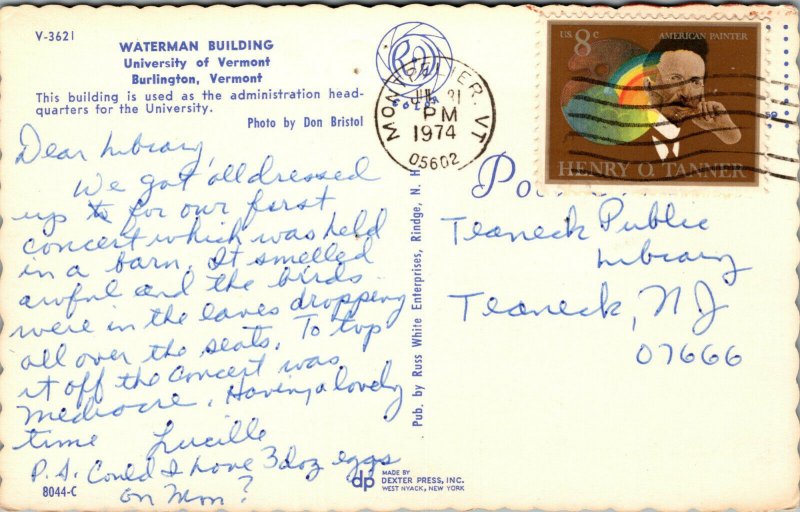 V-3621
WATERMAN BUILDING
University of Vermont
Burlington, Vermont
This building is used as the administration head-
quarters for the University.
Photo by Don Bristol
Dear Library,
We got all dressed
up to for our first
concert which was held
in a barn. It smelled
awful and the birds
were in the eaves dropping
all over the seats. To top
it off the concert was
mediocre. Having a lovely
time Lucille
P.S. Could I have 3 doz eggs
on Mon?
8044-C
COLOR
MONTPELIER, VT
JUL 31
PM
1974
05602
U.S. 8c
AMERICAN PAINTER
HENRY O. TANNER
Teaneck Public
Library
Teaneck, NJ
07666
Pub. by Russ White Enterprises, Rindge, N. H
dp
MADE BY
DEXTER PRESS, INC.
WEST NYACK, NEW YORK